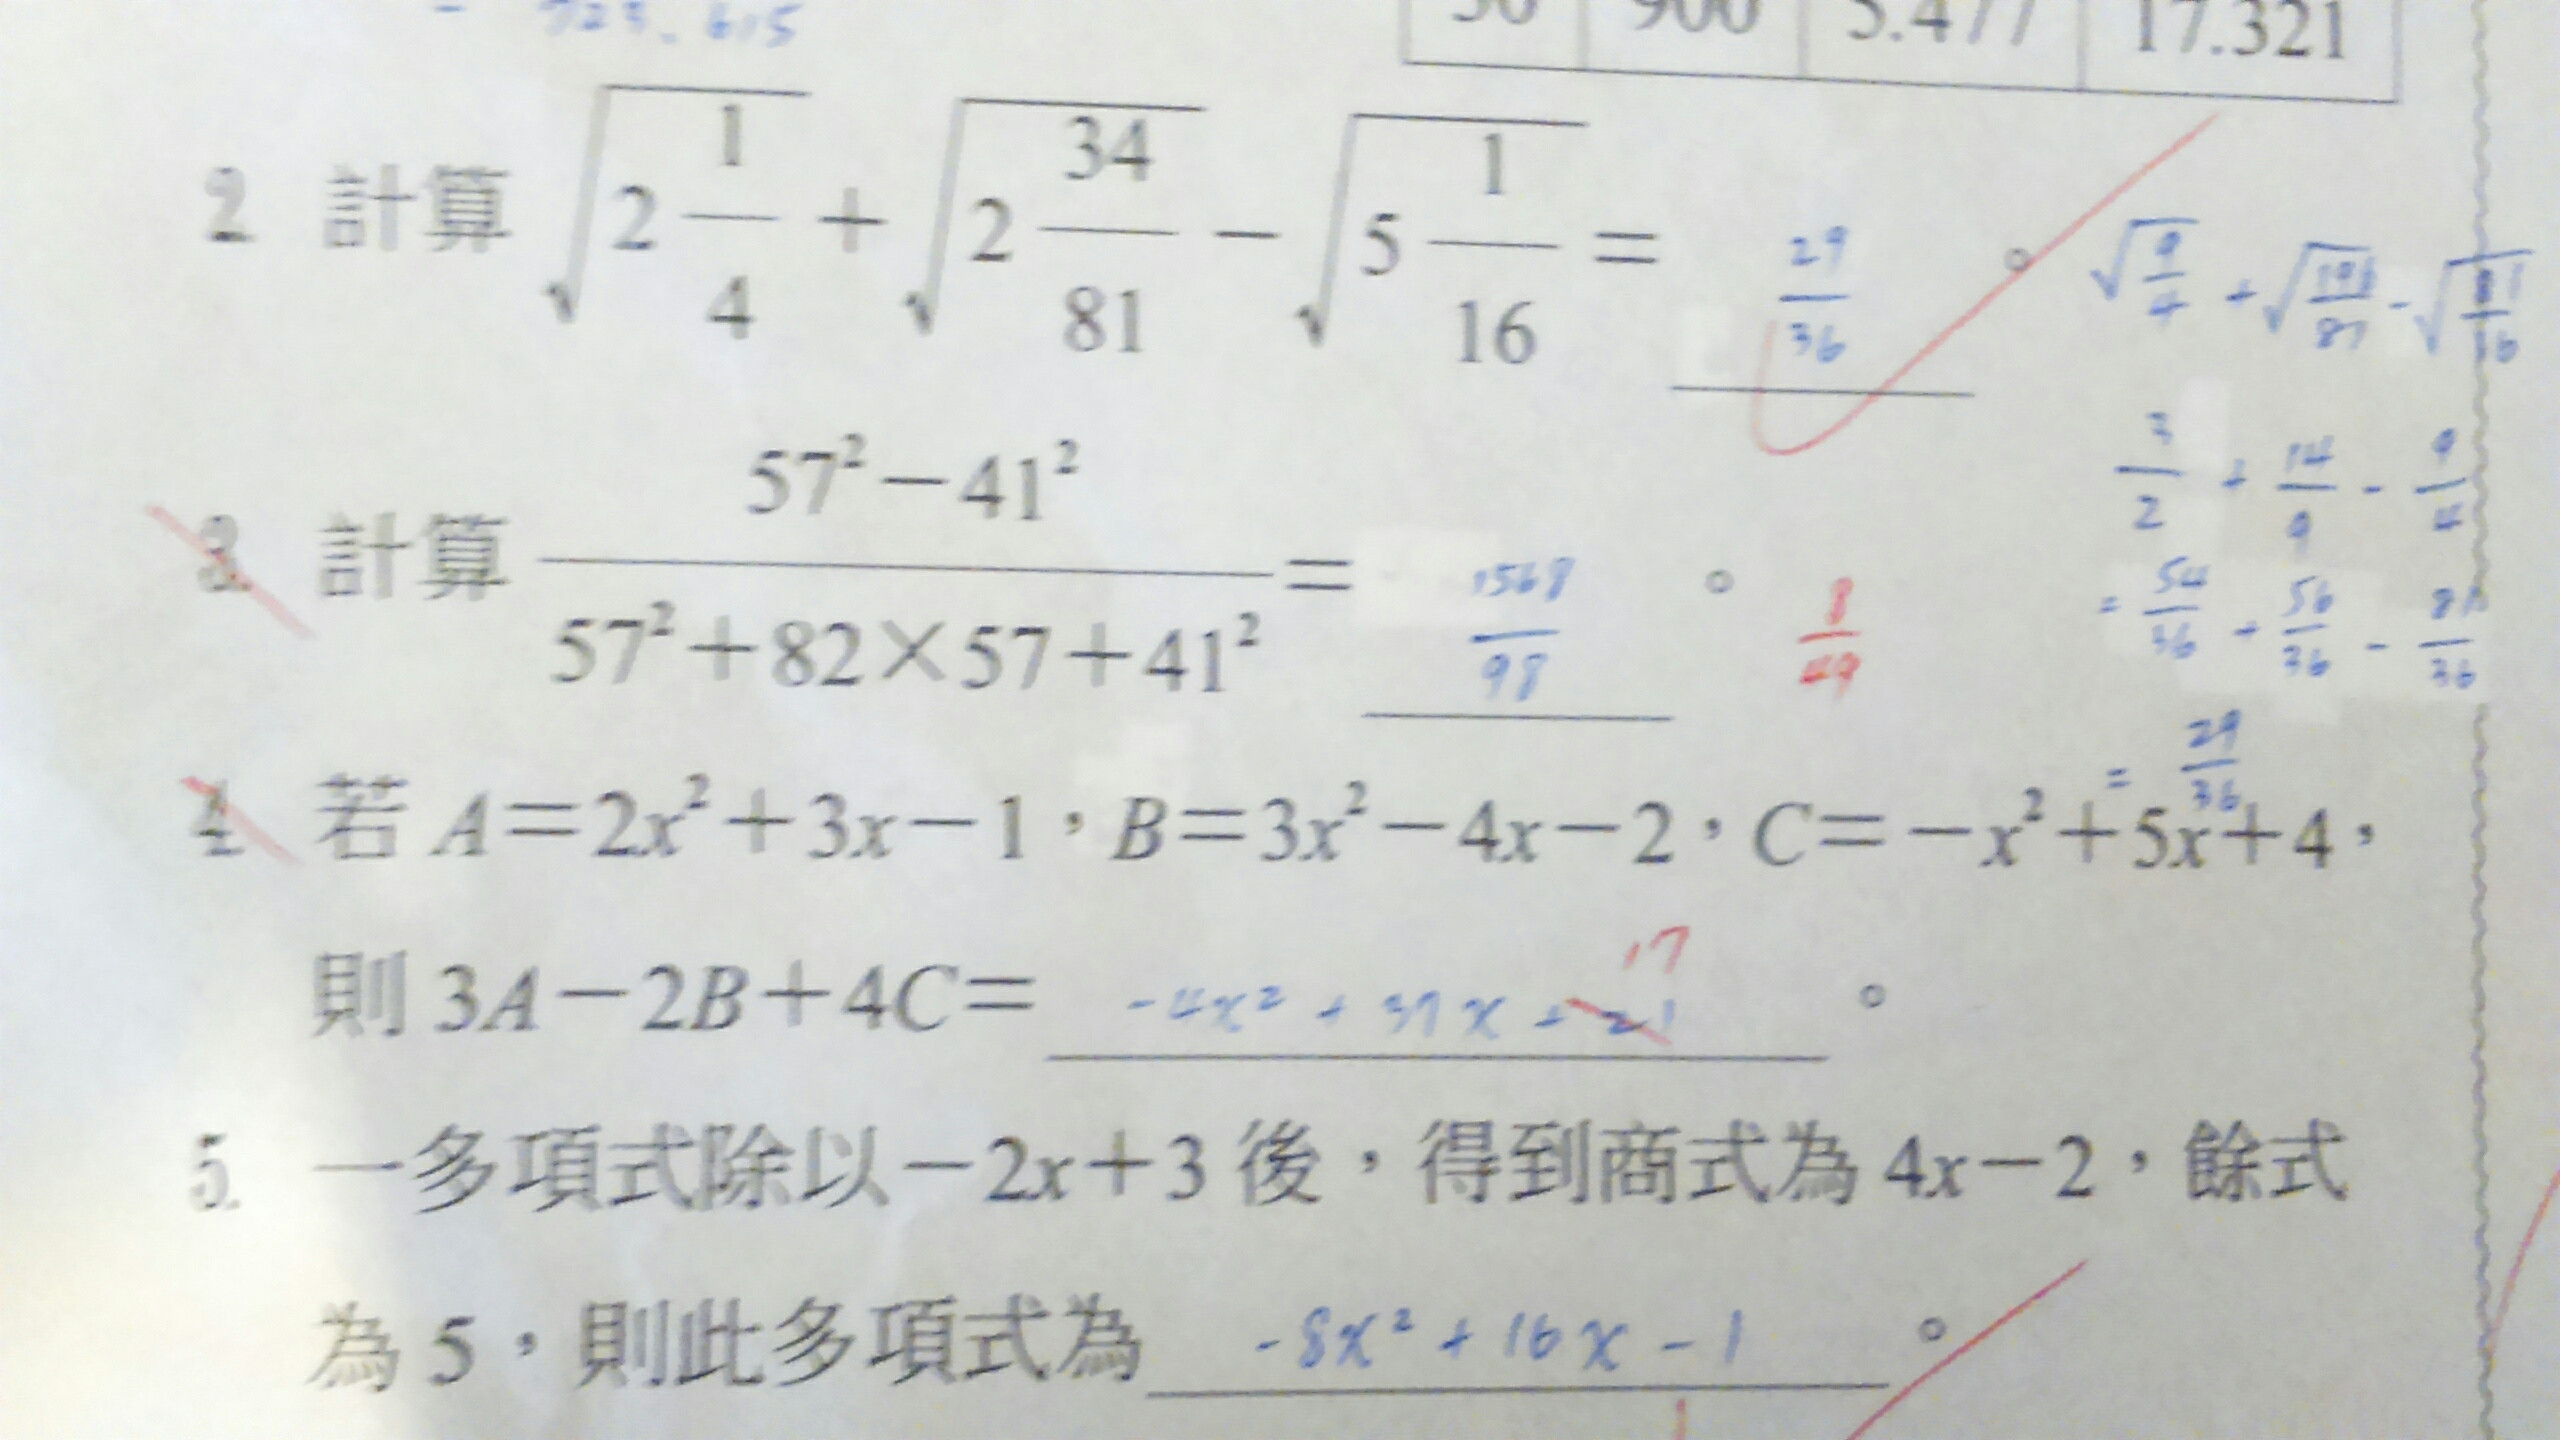 = 723.615
30 900 5.477 17.321
2. 計算 √(2 1/4) + √(2 34/81) - √(5 1/16) = 29/36 。
√(9/4) + √(196/81) - √(81/16)
3/2 + 14/9 - 9/4
= 54/36 + 56/36 - 81/36
= 29/36
3. 計算 (57²-41²)/(57²+82×57+41²) = 1568/98 。 8/49
4. 若 A=2x²+3x-1,B=3x²-4x-2,C=-x²+5x+4,
則 3A-2B+4C= -4x²+37x+21 。 17
5. 一多項式除以-2x+3 後,得到商式為 4x-2,餘式
為 5,則此多項式為 -8x²+16x-1 。